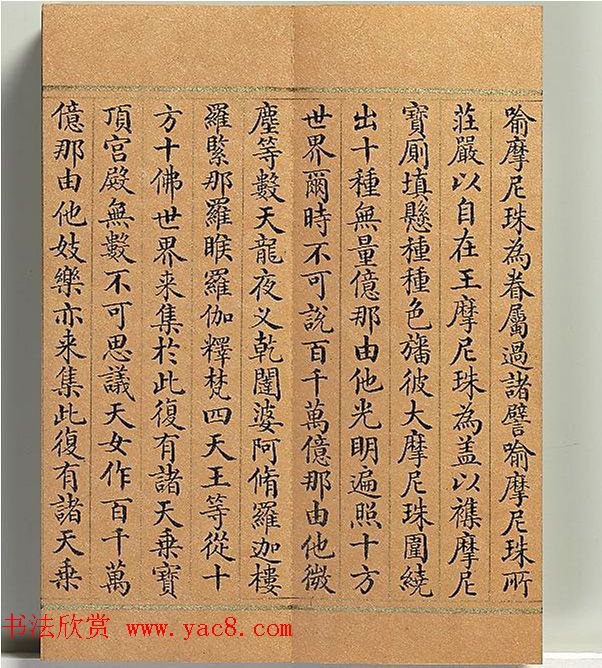 喻摩尼珠為眷屬過諸譬喻摩尼珠所
莊嚴以自在王摩尼珠為盖以襍摩尼
寶廁填懸種種色旛彼大摩尼珠圍繞
出十種無量億那由他光明遍照十方
世界爾時不可說百千萬億那由他微
塵等數天龍夜叉乾闥婆阿脩羅迦樓
羅緊那羅睺羅伽釋梵四天王等從十
方十佛世界来集於此復有諸天乘寶
頂宫殿無數不可思議天女作百千萬
億那由他妓樂亦来集此復有諸天乘
书法欣赏 www.yac8.com